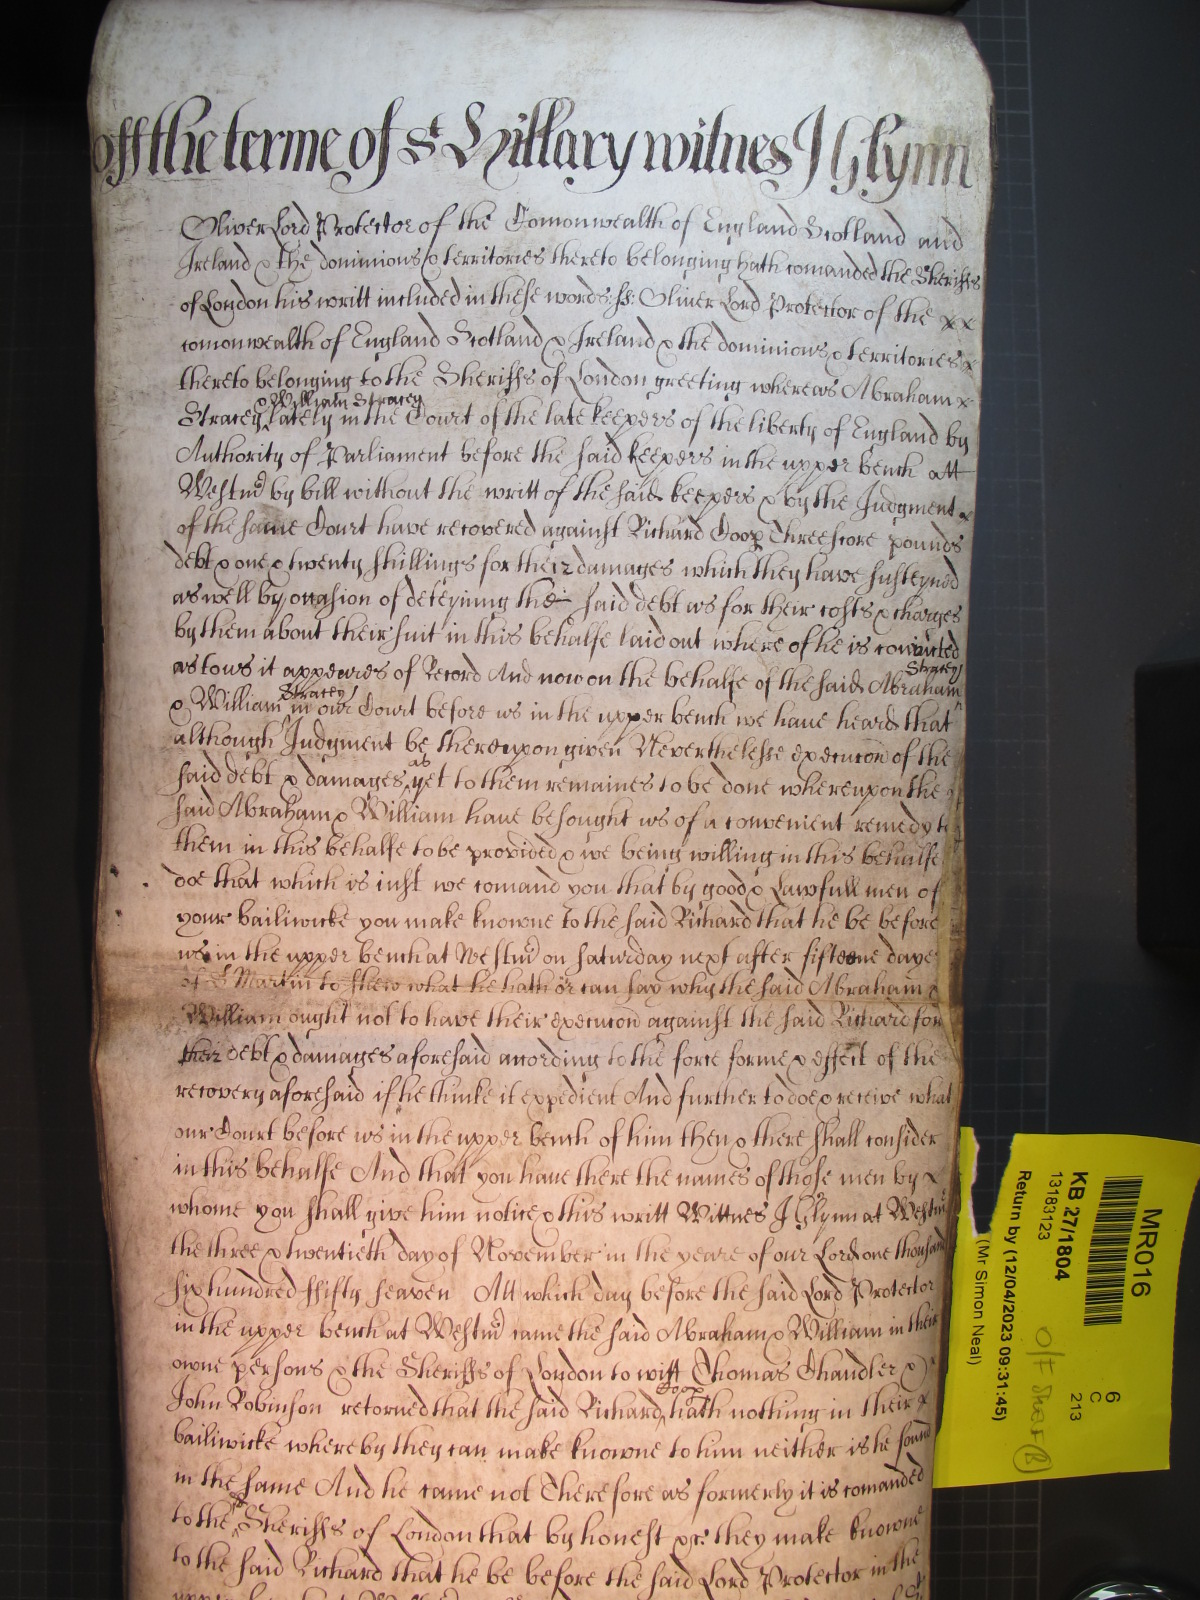 off the terme of St Hillary witnes J Glynn
Oliver Lord Protector of the Comonwealth of England Scotland and
Ireland & the dominions & territories thereto belonging hath comanded the Sheriffs
of London his writt included in these words ss: Oliver Lord Protector of the x x
comonwealth of England Scotland & Ireland & the dominions & territories x
thereto belonging to the Sheriffs of London greeting whereas Abraham x
& William Stracey
Stracey lately in the Court of the late keepers of the liberty of England by
Authority of Parliament before the said keepers in the upper bench att
Westmr by bill without the writt of the said keepers & by the Judgment x
of the same Court have recovered against Richard Coop Threescore pounds
debt & one & twenty shillings for their damages which they have susteyned
as well by occasion of deteyning the said debt as for their costs & charges
by them about their suit in this behalfe laid out where of he is convicted
as to us it appeares of Record And now on the behalfe of the said Abraham
Stracey
& William Stracey in our Court before us in the upper bench we have heard that
although Judgment be thereupon given Neverthelesse execucon of the
said debt & damages as yet to them remaines to be done whereupon the
said Abraham & William have besought us of a convenient remedy to
them in this behalfe to be provided & we being willing in this behalfe
doe that which is iust we comand you that by good & Lawfull men of
your bailiwicke you make knowne to the said Richard that he be before
us in the upper bench at Westmr on saturday next after fifteene daye
of St Martin to shew what he hath or can say why the said Abraham &
William ought not to have their execucon against the said Richard for
their debt & damages aforesaid according to the force forme & effect of the
recovery aforesaid if he thinke it expedient And further to doe & receive what
our Court before us in the upper bench of him then & there shall consider
in this behalfe And that you have there the names of those men by x
whome you shall give him notice & this writt Wittnes J Glynn at Westmr
the three & twentieth day of November in the yeare of our Lord one thousand
six hundred fifty seaven Att which day before the said Lord Protector
in the upper bench at Westmr came the said Abraham & William in their
owne persons & the Sheriffs of London to witt Thomas Chandler &
John Robinson retorned that the said Richard Coop hath nothing in their x
bailiwicke whereby they can make knowne to him neither is he found
in the same And he came not Therefore as formerly it is comanded
to the Sheriffs of London that by honest &c. they make knowne
to the said Richard that he be before the said Lord Protector in the
MR016
KB 27/1804
13183123
Return by (12/04/2023 09:31:45)
(Mr Simon Neal)
6
C
213